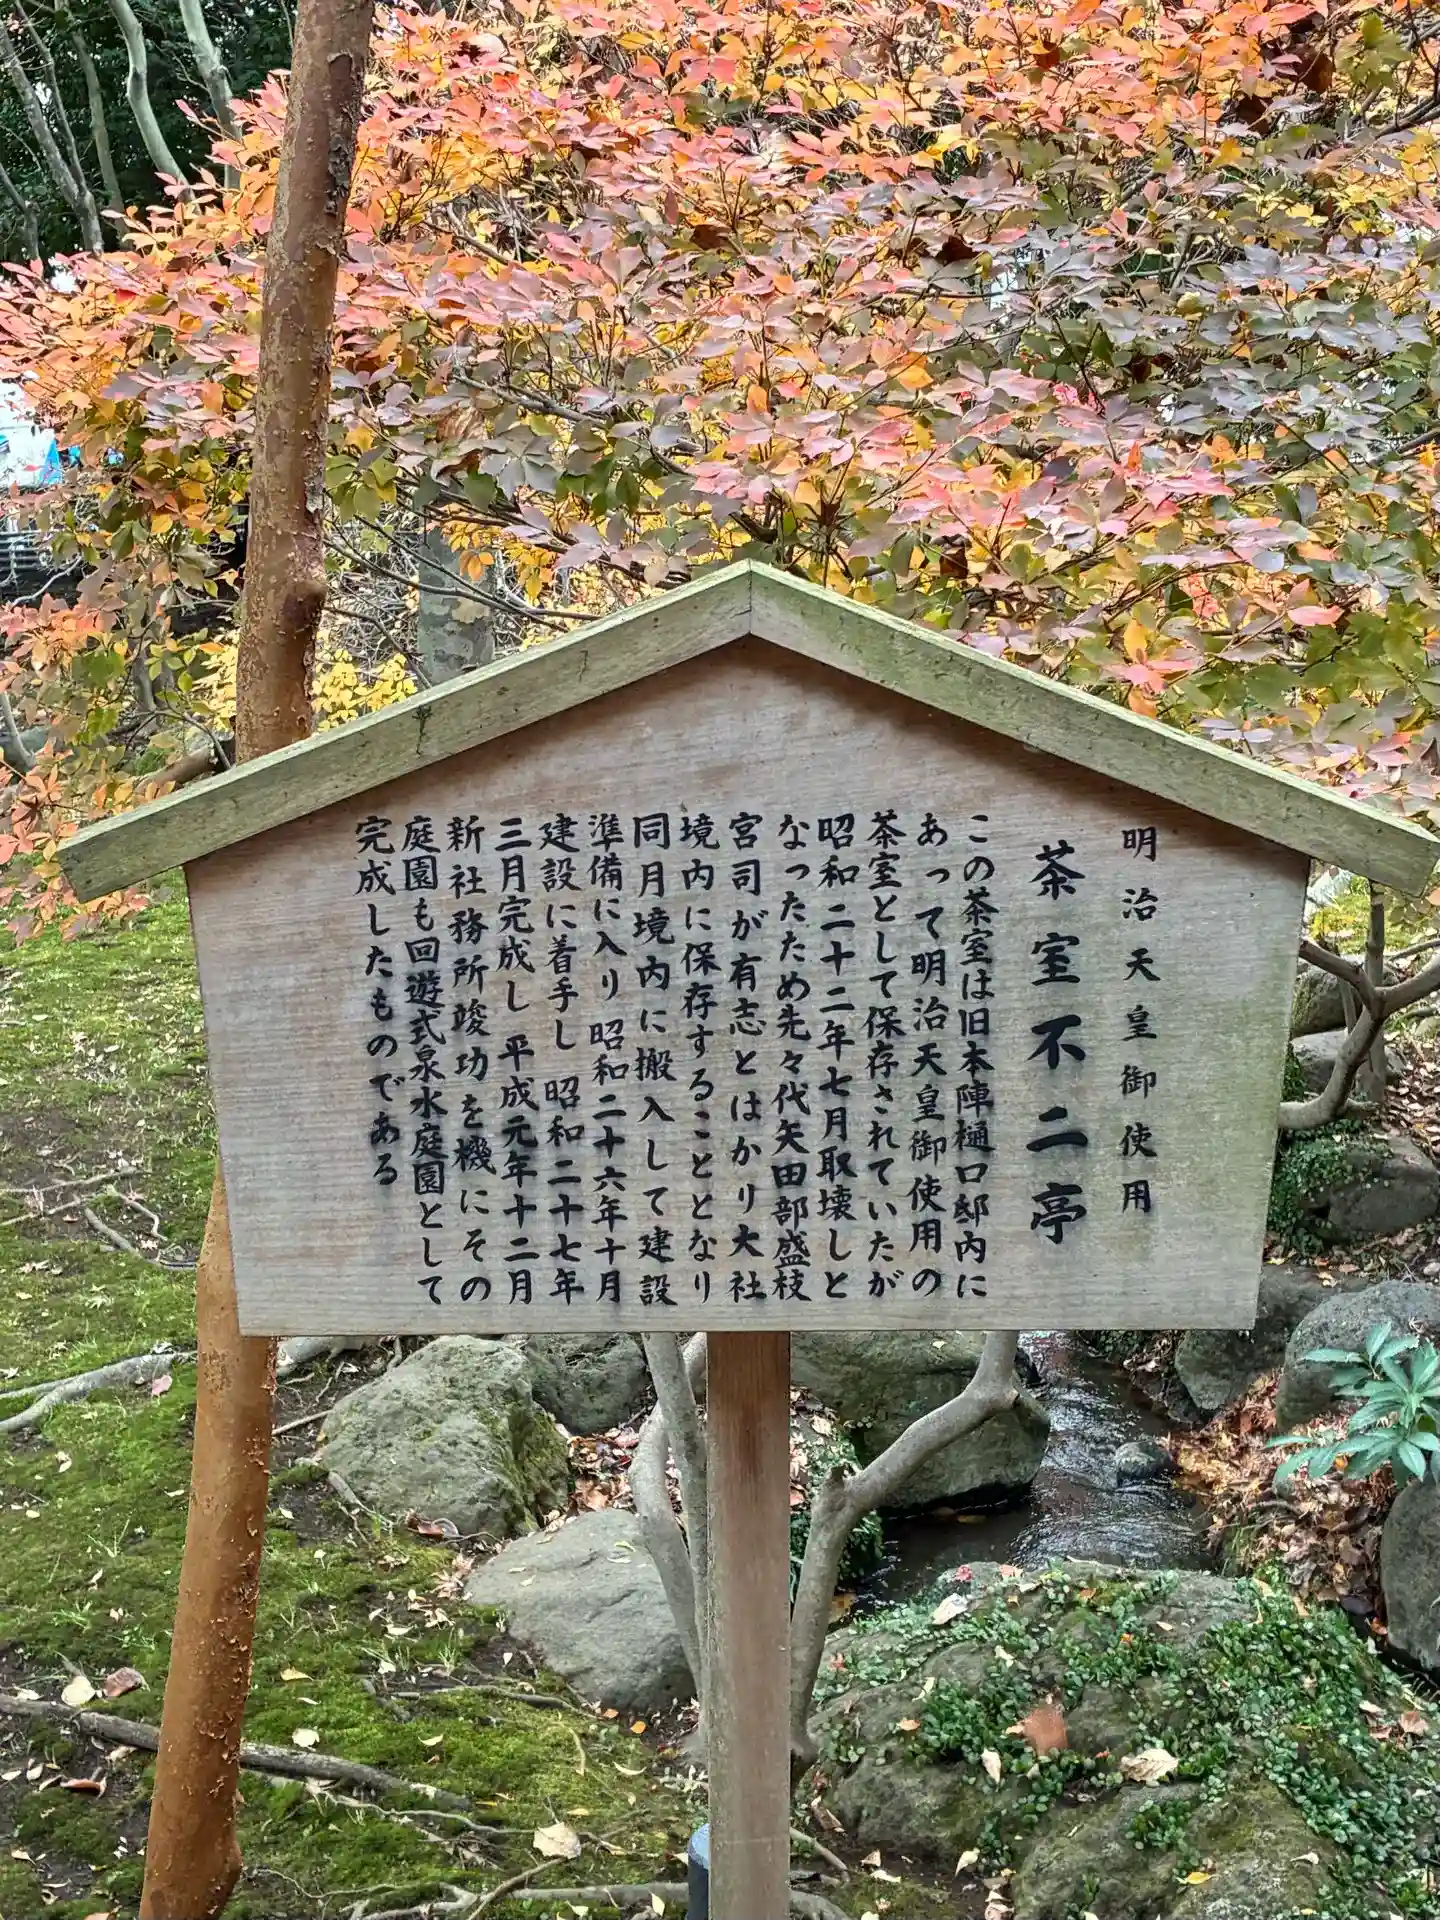 明治天皇御使用
茶室不二亭
この茶室は旧本陣樋口邸内に
あって明治天皇御使用の
茶室として保存されていたが
昭和二十二年七月取壊しと
なったため先々代矢田部盛枝
宮司が有志とはかり大社
境内に保存することとなり
同月境内に搬入して建設
準備に入り 昭和二十六年十月
建設に着手し 昭和二十七年
三月完成し 平成元年十二月
新社務所竣功を機にその
庭園も回遊式泉水庭園として
完成したものである